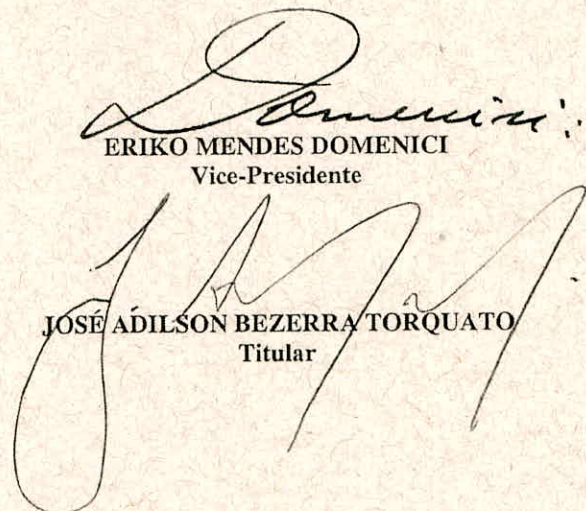 Domenici
ERIKO MENDES DOMENICI
Vice-Presidente
JOSÉ ADILSON BEZERRA TORQUATO
Titular